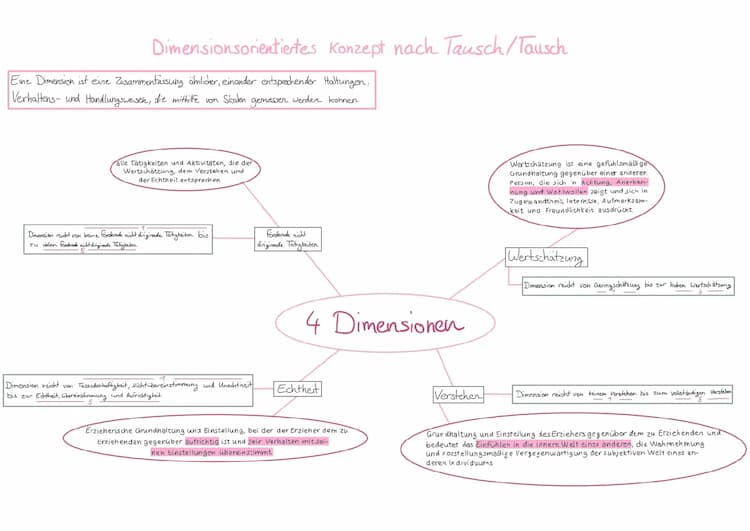 Dimensionsorientiertes Konzept nach Tausch/Tausch
Eine Dimension ist eine Zusammenfassung ähnlicher, einander entsprechender Haltungen,
Verhaltens- und Handlungsweisen, die mithilfe von Skalen gemessen werden können
alle Tätigkeiten und Aktivitäten, die der
Wertschätzung, dem Verstehen und
der Echtheit entsprechen
Dimension reicht von keine Fördernde nicht dirigierende Tätigkeiten bis
1
zu vielen Fördernde nicht dirigierende Tätigkeiten
5
Fördernde nicht
dirigierende Tätigkeiten
Wertschätzung ist eine gefühlsmäßige
Grundhaltung gegenüber einer anderen
Person, die sich in Achtung, Anerken-
nung und Wohlwollen zeigt und sich in
Zugewandtheit, Interesse, Aufmerksam-
keit und Freundlichkeit ausdrückt
Wertschätzung
Dimension reicht von Geringschätzung bis zur hohen Wertschätzung
4 Dimensionen
Dimension reicht von Fassadenhaftigkeit, Nichtübereinstimmung und Unechtheit
1
bis zur Echtheit, Übereinstimmung und Aufrichtigkeit
5
Echtheit
Erzieherische Grundhaltung und Einstellung, bei der der Erzieher dem zu
Erziehenden gegenüber aufrichtig ist und sein Verhalten mit sei-
nen Einstellungen übereinstimmt
Verstehen
Dimension reicht von keinem Verstehen bis zum vollständigen Verstehen
Grundhaltung und Einstellung des Erziehers gegenüber dem zu Erziehenden und
bedeutet das Einfühlen in die innere Welt eines anderen, die Wahrnehmung
und vorstellungsmäßige Vergegenwärtigung der subjektiven Welt eines an-
deren Individuums